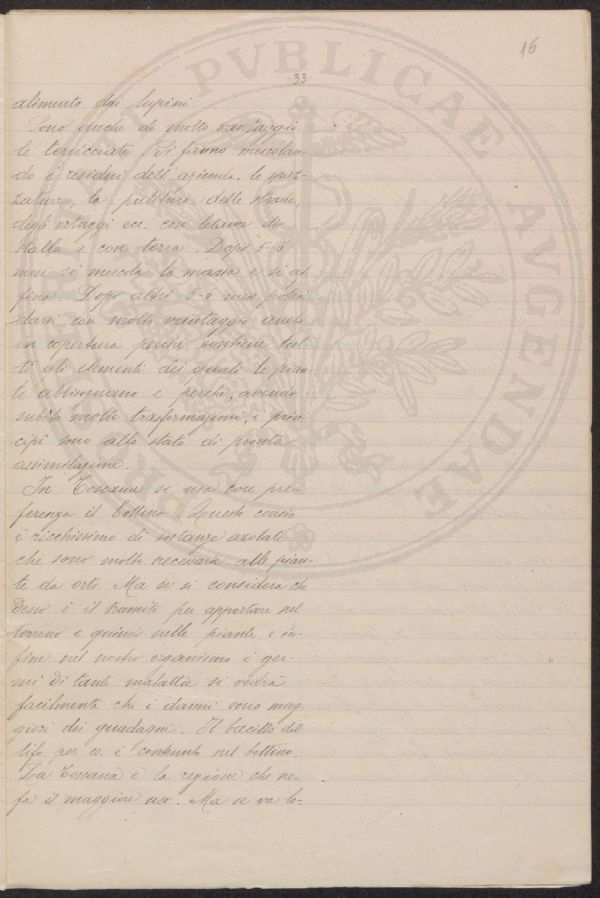 16
-33-
alimento dai lupini.
Sono anche di molto vantaggio
le terricciate. Si fanno mescolan-
do i residui dell'azienda, le spaz-
zature, la pulitura delle strade,
degli ortaggi ecc. con letame di
stalla e con terra. Dopo 5-6
mesi si mescola la massa e si af-
fina. Dopo altri 5-6 mesi potrà
darsi con molto vantaggio anche
in copertura perché contiene tut-
ti gli elementi dei quali le pian-
te abbisognano e perché, avendo
subito molte trasformazioni, i prin-
cipi sono allo stato di pronta
assimilazione.
In Toscana si usa con pre-
ferenza il bottino. Questo concio
è ricchissimo di sostanze azotate
che sono molto necessarie alle pian-
te da orto. Ma se si considera che
esso è il tramite per apportare nel
terreno e quindi nelle piante e in-
fine nel nostro organismo i ger-
mi di tante malattie si vedrà
facilmente che i danni sono mag-
giori dei guadagni. Il bacillo del
tifo per es. è contenuto nel bottino.
La Toscana è la regione che ne
fa il maggiore uso. Ma se va lo-
PVBLICAE
AVGENDAE